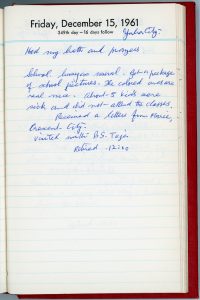 Friday, December 15, 1961
349th day—16 days follow
Yuba City.
Had my bath and prayers.
School, busy as usual. Got a package
of school pictures. The colored ones are
real nice. About 5 kids were
sick and did not attend the classes.
Received a letter from
Crescent City.
Visited with B.S. Teja
Retired 12:00